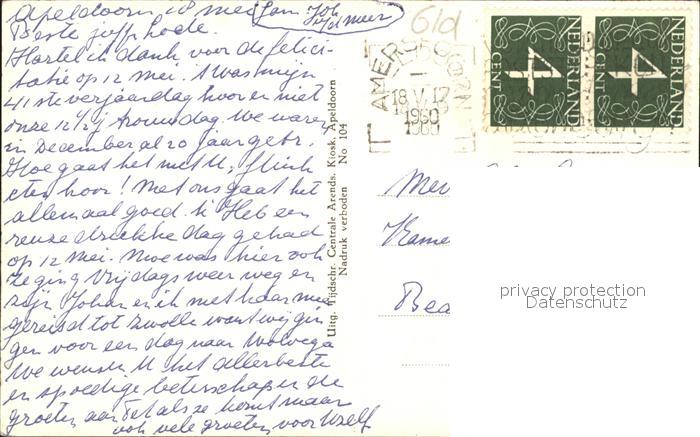 Apeldoorn 18 mei Jan Joh
v/d meer
Beste juffr. hoede.
Hartelijk dank voor de felici-
tatie op 12 mei. 't Was mijn
41ste verjaardag hoor en niet
onze 12½ j trouwdag. We waren
in December al 20 jaar getr.
Hoe gaat het met U, flink
eten hoor! Met ons gaat het
allemaal goed. 'k Heb een
reuze drukke dag gehad
op 12 mei. Moe was hier ook
ze ging Vrijdags weer weg en
zijn Johan en ik met haar mee
gereisd tot Zwolle want wij gin
gen voor een dag naar Wolvega
We wensen U het allerbeste
en spoedige beterschap en de
groeten aan Bet als ze komt maar
ook vele groeten voor Uzelf
Uitg. Tijdschr. Centrale Arends. Kiosk. Apeldoorn
Nadruk verboden No 104
61d
AMERSFOORT
18.V.17
1960
1960
NEDERLAND
4
CENT
NEDERLAND
4
CENT
Mev
Kame
Bea
privacy protection
Datenschutz